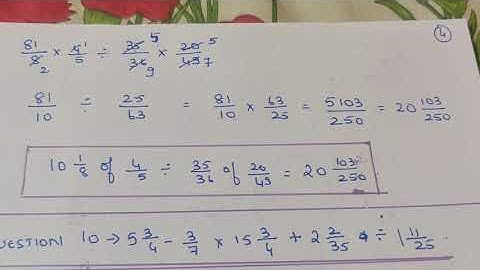 4
81/8 2 × 4 1/5 ÷ 35 5/36 9 × 20 5/49 7
81/10 ÷ 25/63 = 81/10 × 63/25 = 5103/250 = 20 103/250
10 1/8 of 4/5 ÷ 35/36 of 20/49 = 20 103/250
UESTION 10 → 5 3/4 - 3/7 × 15 3/4 + 2 2/35 ÷ 1 11/25.